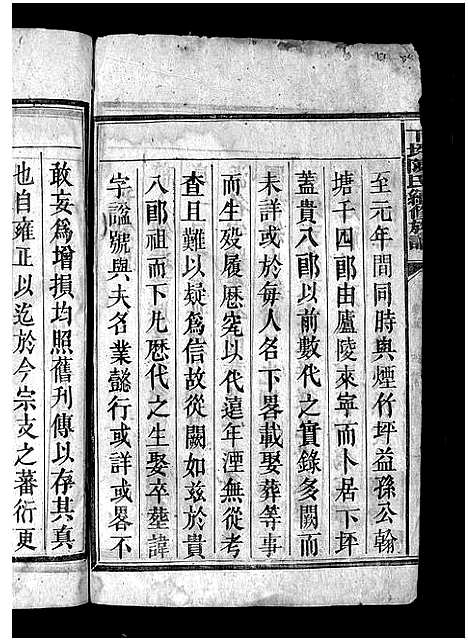 至元年間同時與煙竹坪益孫公翰
塘千四郎由廬陵來寧而卜居下坪
蓋貴八郎以前數代之實錄多闕而
未詳或於每人名下畧載娶葬等事
而生殁履歷究以代遠年湮無從考
查且難以疑爲信故從闕如兹於貴
八郎祖而下凡歷代之生娶卒塟諱
字諡號與夫名業懿行或詳或畧不
敢妄爲增損均照舊刊傳以存其真
也自雍正以迄於今宗支之蕃衍更